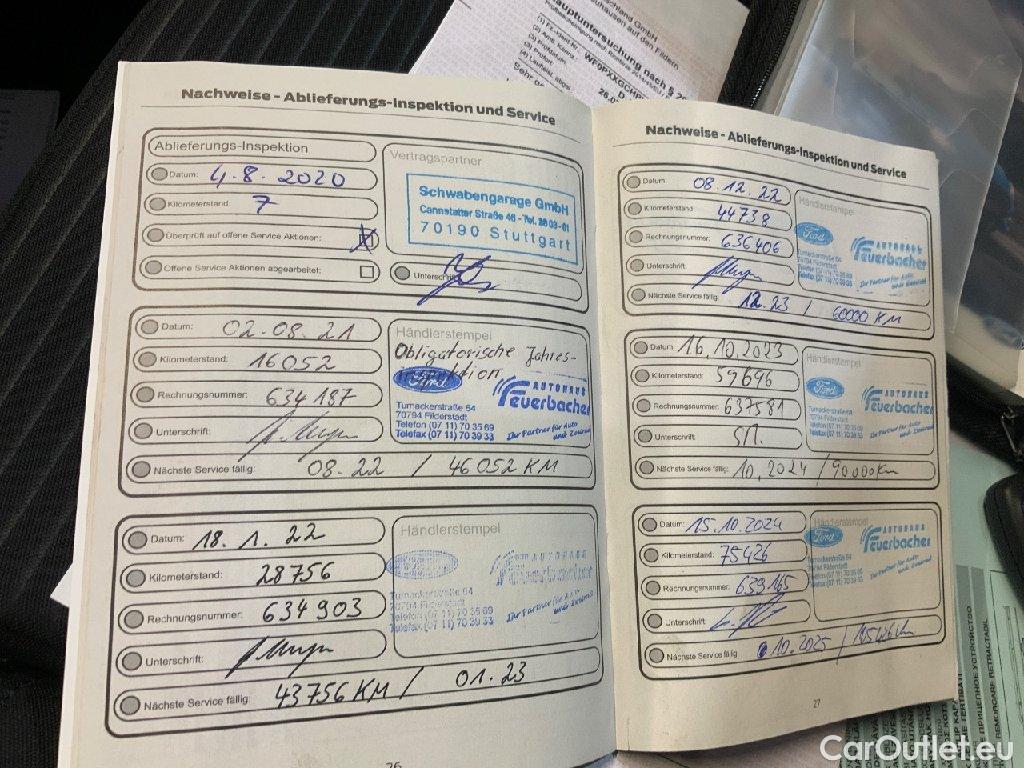 Hauptuntersuchung nach §
Nachweise - Ablieferungs-Inspektion und Service
Ablieferungs-Inspektion
Datum: 4.8.2020
Kilometerstand: 7
Überprüft auf offene Service Aktionen:
Offene Service Aktionen abgearbeitet:
Vertragspartner
Schwabengarage GmbH
Cannstatter Straße 46 - Tel. 28 03-01
70190 Stuttgart
Unterschrift
Datum: 02.08.21
Kilometerstand: 16052
Rechnungsnummer: 634187
Unterschrift:
Nächste Service fällig: 08.22 / 46052 KM
Händlerstempel
Obligatorische Jahres-
Ford
AUTOHAUS
Feuerbacher
Turnackerstraße 64
70794 Filderstadt
Telefon (07 11) 70 35 69
Telefax (07 11) 70 39 33
Ihr Partner für Auto
und Zubehör
Datum: 18.1.22
Kilometerstand: 28756
Rechnungsnummer: 634903
Unterschrift:
Nächste Service fällig: 43756 KM / 01.23
Händlerstempel
AUTOHAUS
Feuerbacher
70794 Filderstadt
Telefon (07 11) 70 35 69
Telefax (07 11) 70 39 33
Ihr Partner für Auto
26
Nachweise - Ablieferungs-Inspektion und Service
Datum: 08.12.22
Kilometerstand: 44738
Rechnungsnummer: 636406
Unterschrift:
Nächste Service fällig: 12.23 / 60000 KM
Händlerstempel
Ford
AUTOHAUS
Feuerbacher
Ihr Partner für Auto
Datum: 16.10.2023
Kilometerstand: 59696
Rechnungsnummer: 637581
Unterschrift:
Nächste Service fällig: 10.2024 / 90000 Km
Händlerstempel
Ford
AUTOHAUS
Feuerbacher
Ihr Partner für Auto
Datum: 15.10.2024
Kilometerstand: 75426
Rechnungsnummer: 639165
Unterschrift:
Nächste Service fällig: 10.2025 / 105426 Km
Händlerstempel
Ford
AUTOHAUS
Feuerbacher
Ihr Partner für Auto
27
CarOutlet.eu